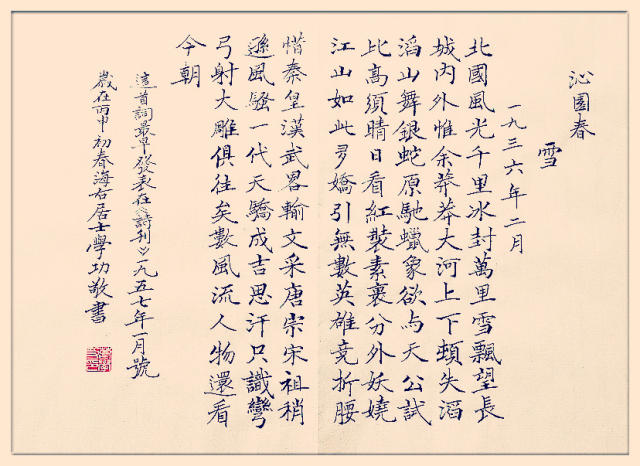 沁園春
雪
一九三六年二月
北國風光千里冰封萬里雪飄望長
城内外惟余莽莽大河上下頓失滔
滔山舞銀蛇原馳蠟象欲与天公試
比高須晴日看紅裝素裹分外妖嬈
江山如此多嬌引無數英雄竞折腰
惜秦皇漢武畧輸文采唐宗宋祖稍
遜風騷一代天驕成吉思汗只識彎
弓射大雕俱往矣數風流人物還看
今朝
這首詞最早發表在《詩刊》一九五七年一月號
歲在丙申初春海右居士學功敬書